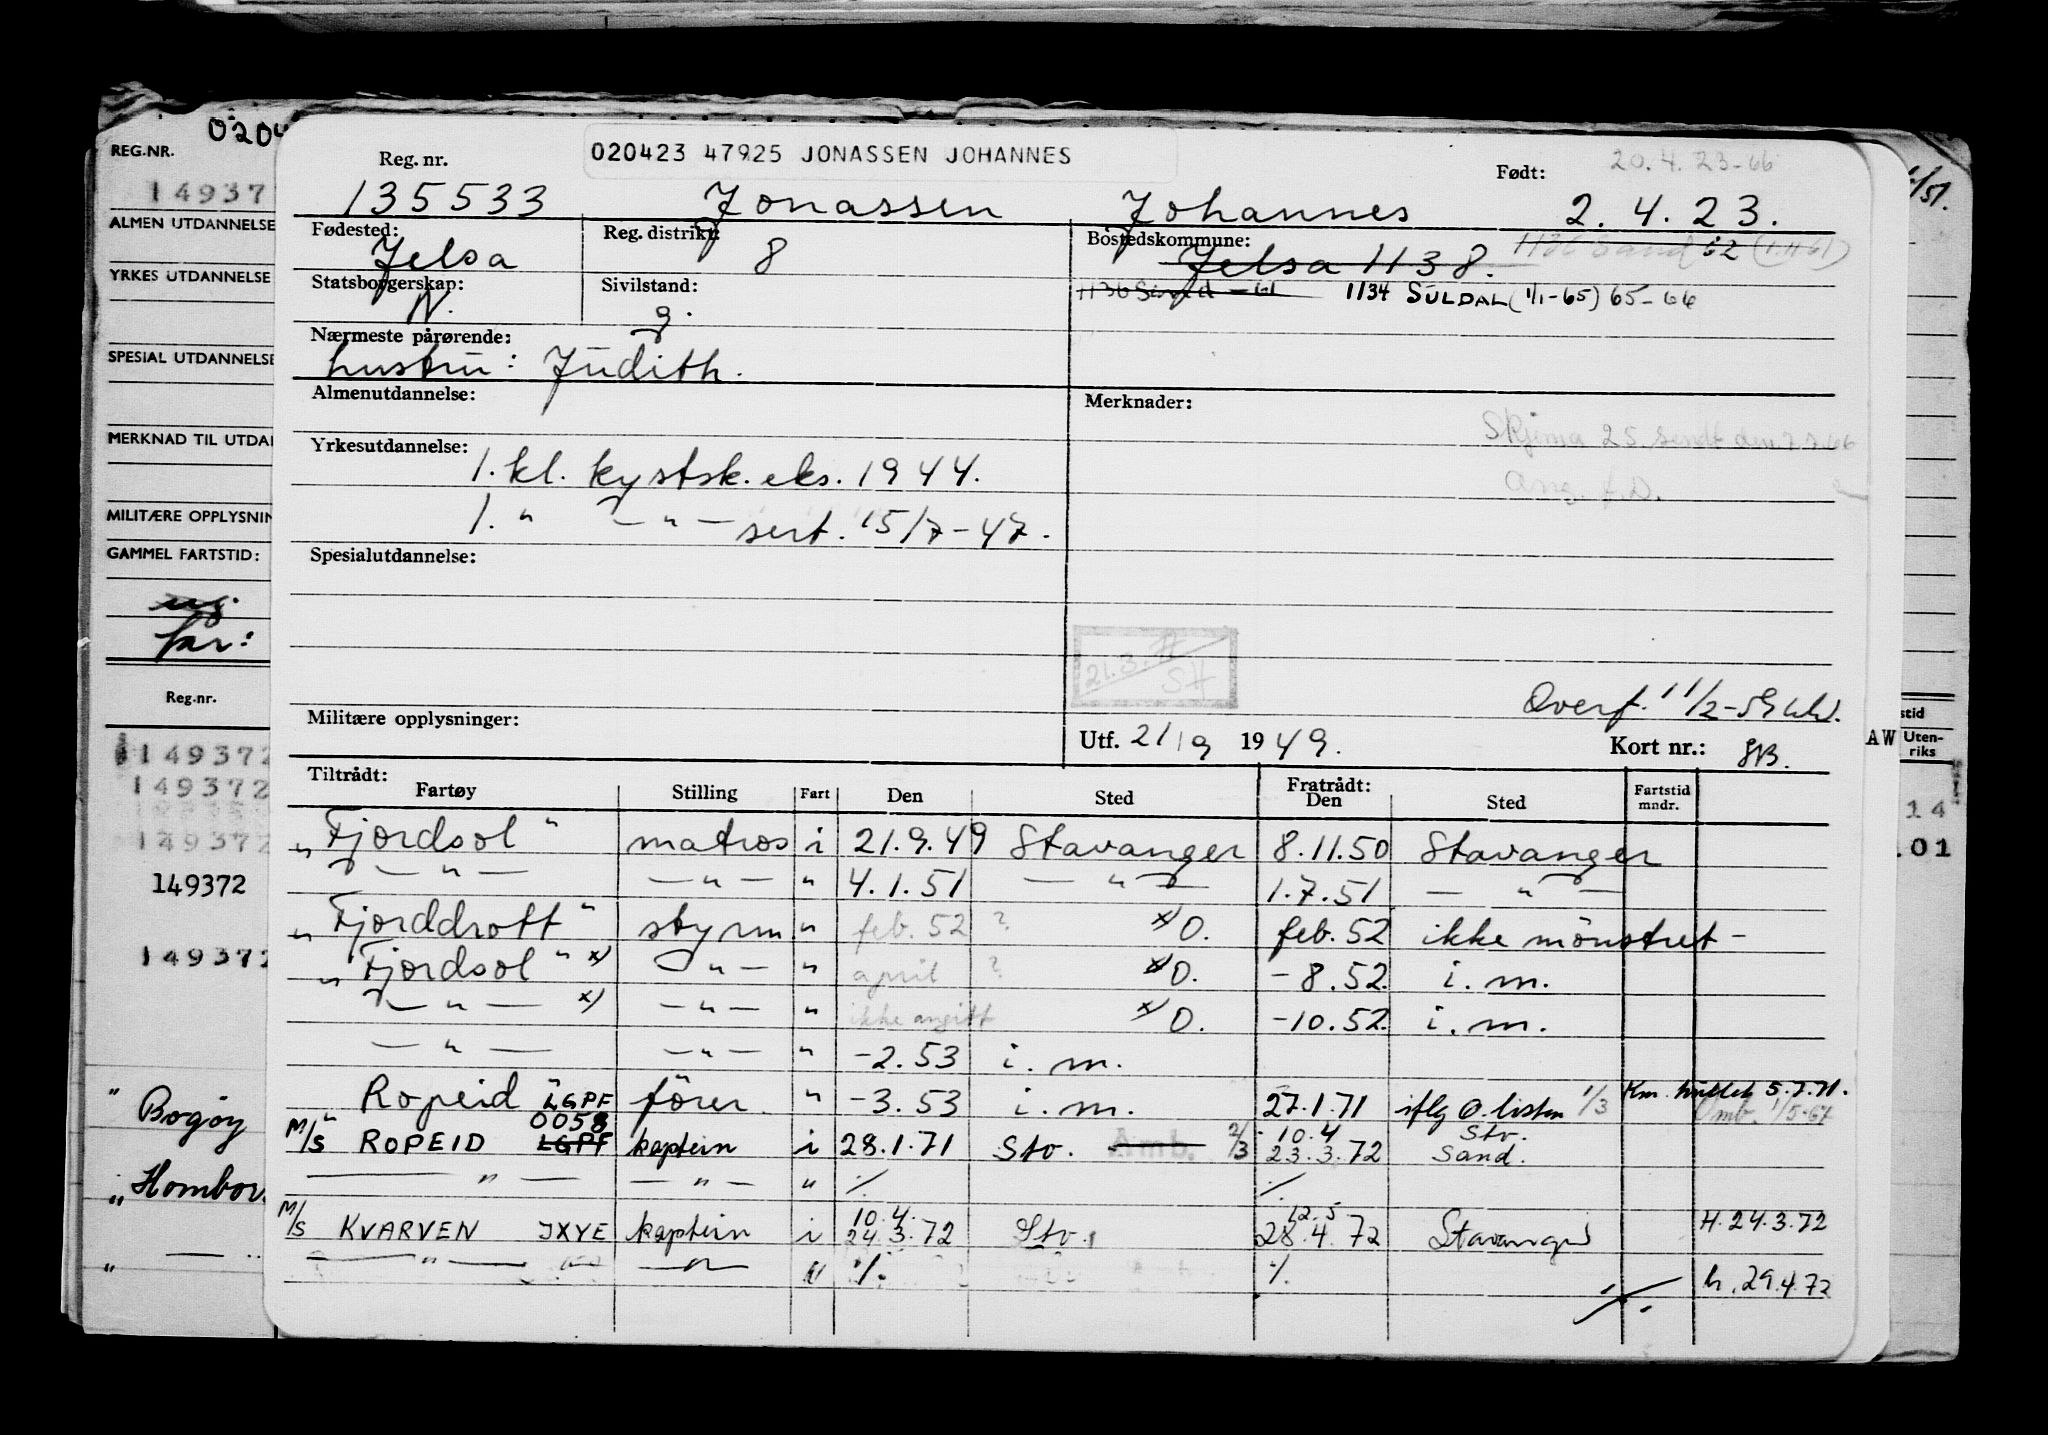 020423 47925 JONASSEN JOHANNES
Reg. nr. Født: 20.4.23-66
135533 Jonassen Johannes 2.4.23.
Fødested: Jelsa Reg. distrikt: 8 Bostedskommune: Jelsa 1138. 1136 Sand 62 (1.11 61)
Statsborgerskap: N. Sivilstand: g. 1136 Sand -61 1134 SULDAL (1/1-65) 65-66
Nærmeste pårørende:
hustru: Judith.
Almenutdannelse: Merknader:
Skjema 25 sendt den 7.7.66
Ang. f.D.
Yrkesutdannelse:
1. kl. kystsk. eks. 1944.
1. " — " — sert. 15/7-47.
Spesialutdannelse:
21.3.
Overf. 11/2-59
Militære opplysninger: Utf. 21/9 1949. Kort nr.:
Tiltrådt: Fratrådt:
Fartøy Stilling Fart Den Sted Den Sted Fartstid mndr.
"Fjordsol" matros i 21.9.49 Stavanger 8.11.50 Stavanger
— " — — " — " 4.1.51 — " — 1.7.51 — " —
"Fjorddrott" styrm. " feb. 52 ? x) O. feb. 52 ikke mönstret -
"Fjordsol" x) — " — " april ? x) O. - 8.52. i. m.
— " — x) — " — " ikke angitt x) O. -10.52. i. m.
— " — — " — " -2.53 i. m.
"Ropeid" LGPF förer " -3.53 i. m. 27.1.71 iflg O. listen 1/3 Km. 5.7.71.
Omb. 1/5-67
0058 10.4 Stv.
M/S ROPEID LGPF kaptein i 28.1.71 Stv. Amb. 2/3 23.3.72 Sand.
— " — — " — " ·/. ·/.
10.4. 12.5
M/S KVARVEN JXYE kaptein i 24.3.72 Stv. 28.4.72 Stavanger H. 24.3.72
— " — — " — " ·/. ·/. h. 29.4.72
0204
REG.NR.
14937
ALMEN UTDANNELSE
YRKES UTDANNELSE
SPESIAL UTDANNELSE
MERKNAD TIL UTDAN
MILITÆRE OPPLYSNIN
GAMMEL FARTSTID:
før:
Reg.nr.
149372
149372
149372
149372
149372
" Bogøy
" Hombor
— "
"
1/51.
stid
AW Uten-
riks
14
.01